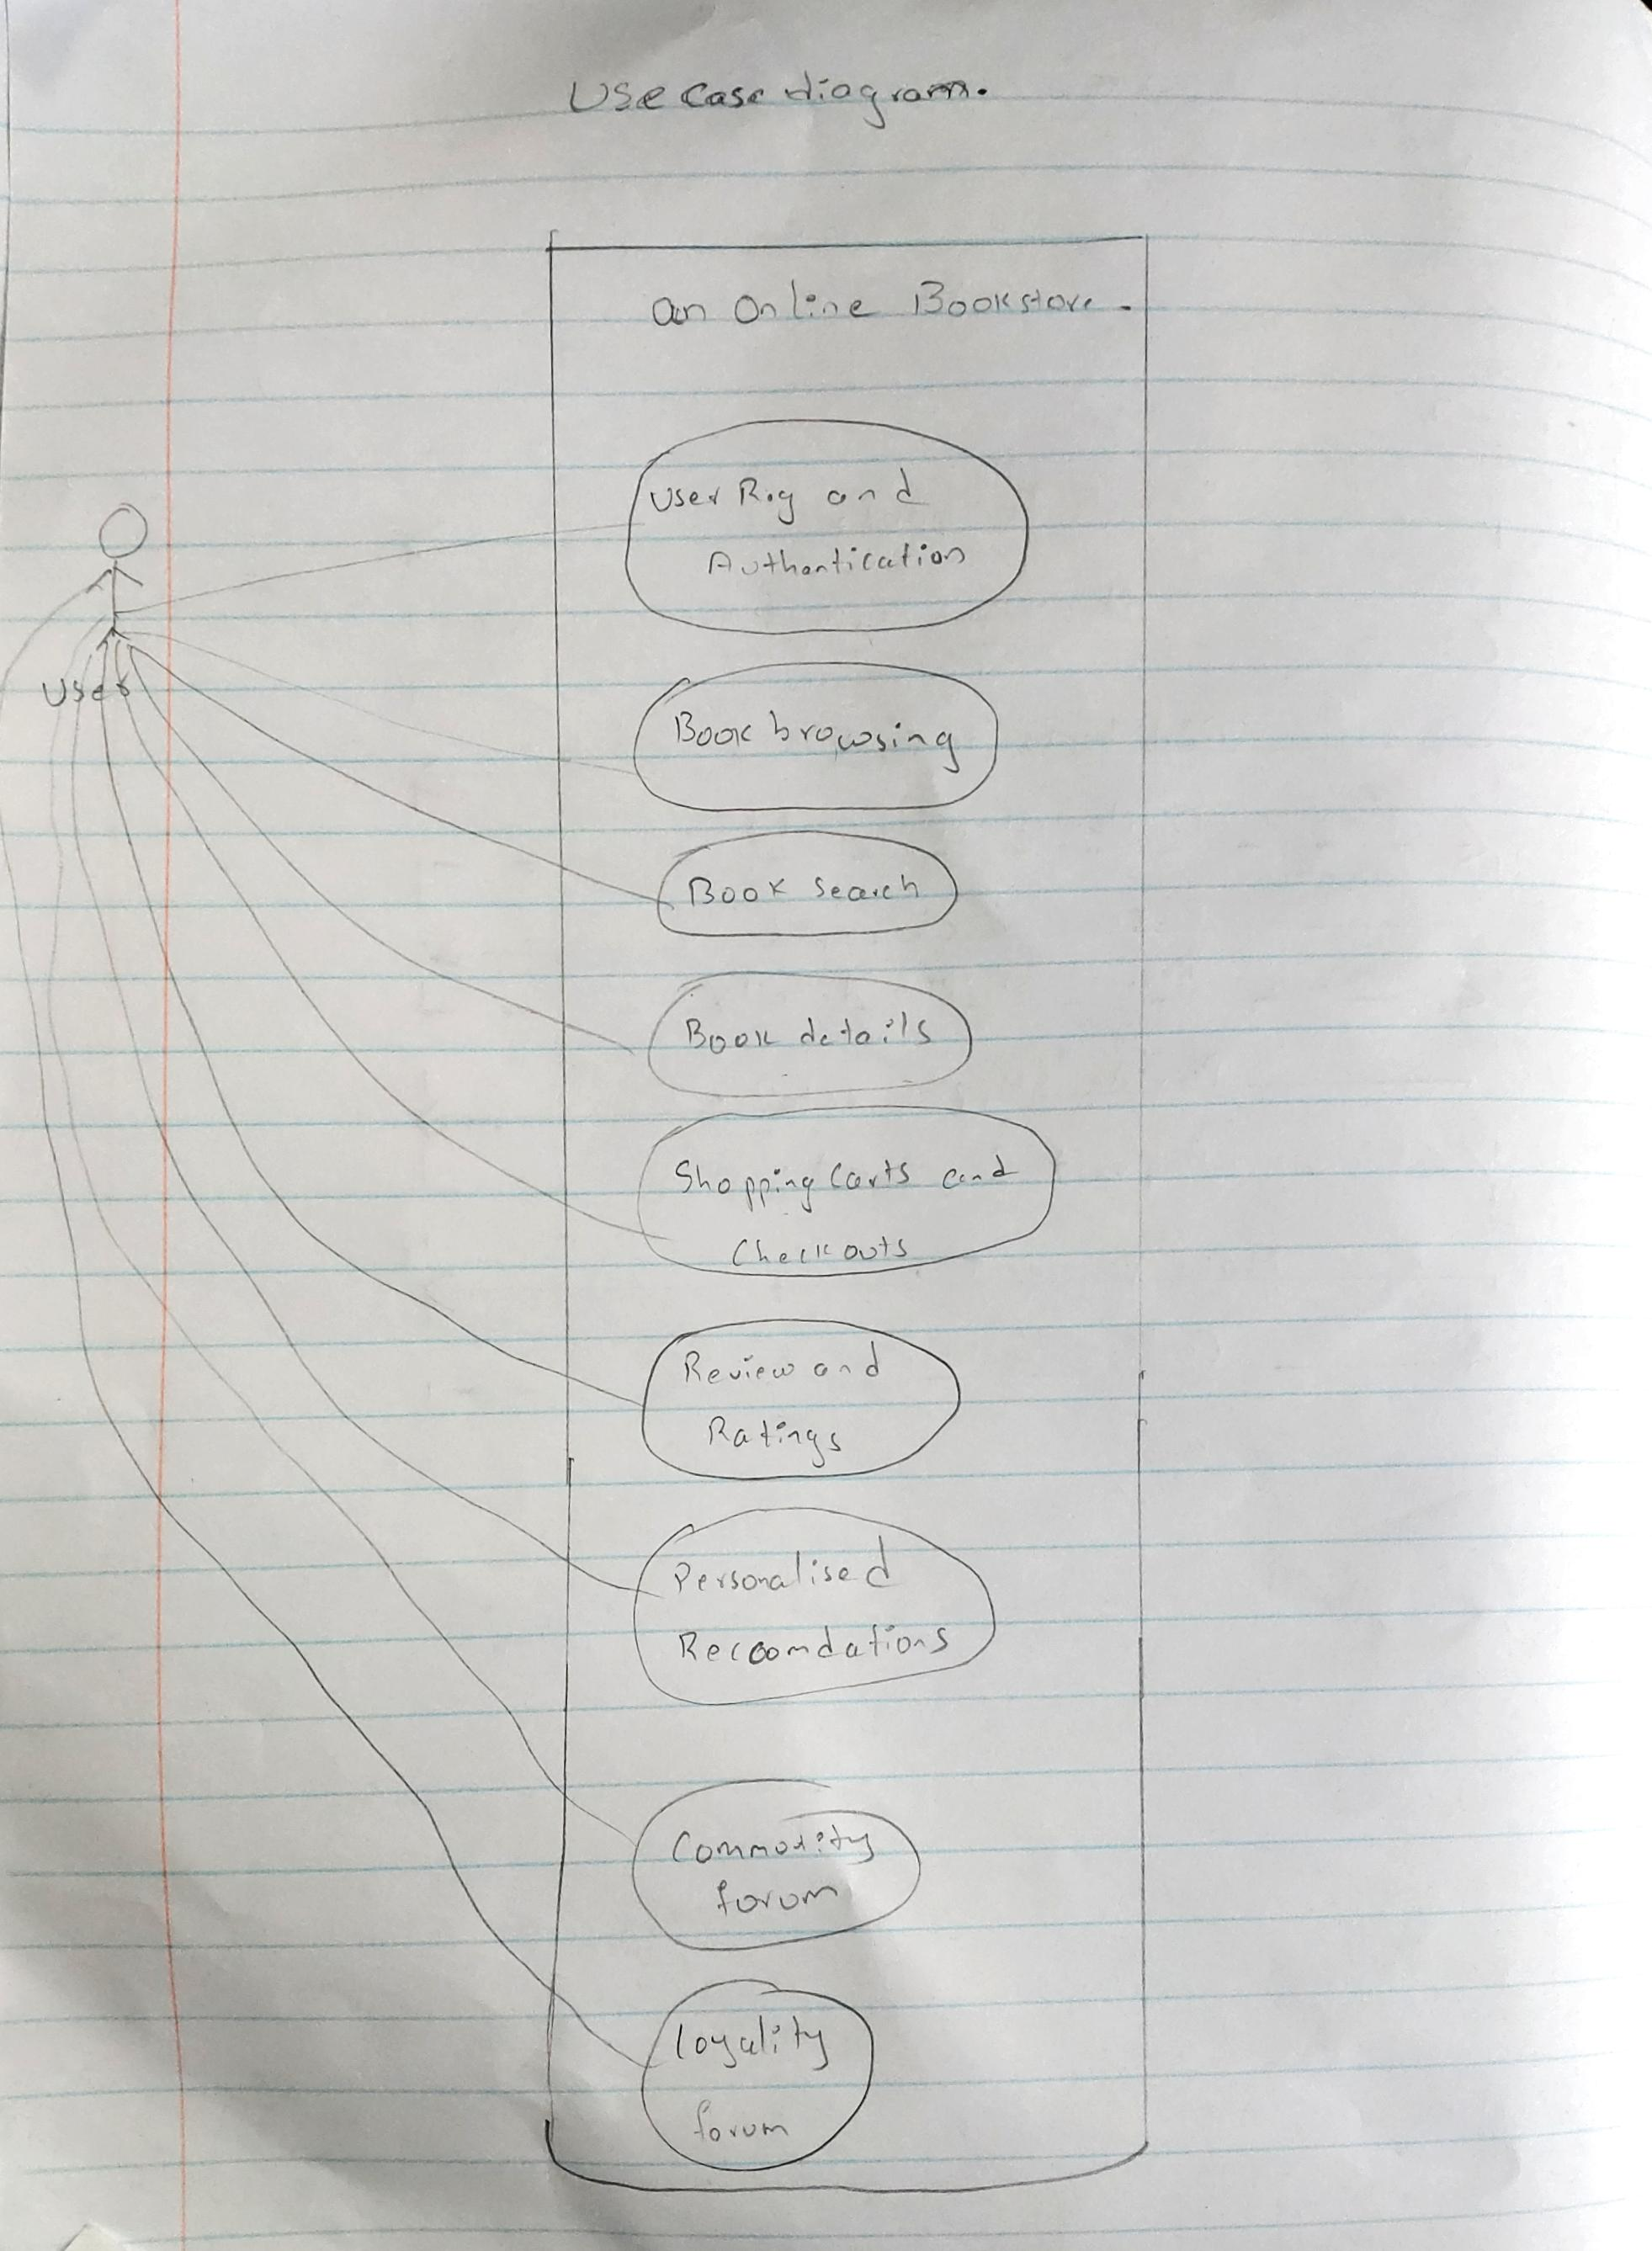 Use Case diagram.
an Online Bookstore.
User Reg and
Authentication
User
Book browsing
Book search
Book details
Shopping Carts and
Checkouts
Review and
Ratings
Personalised
Reccomdations
Commonity
forum
Loyality
forum